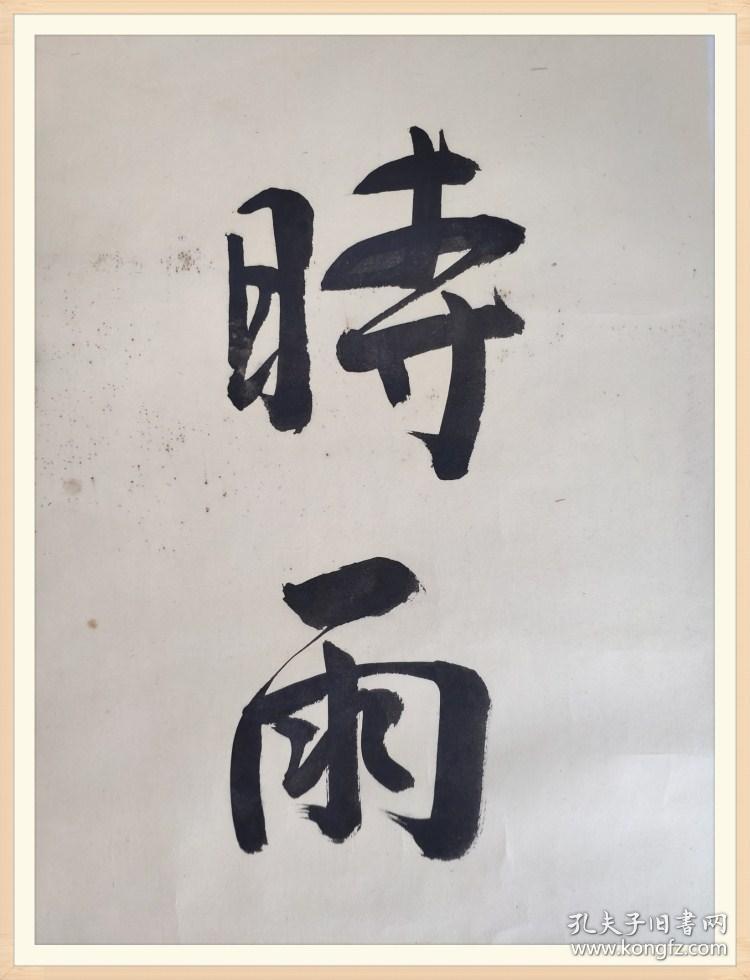 時
雨
孔夫子旧書网
www.kongfz.com